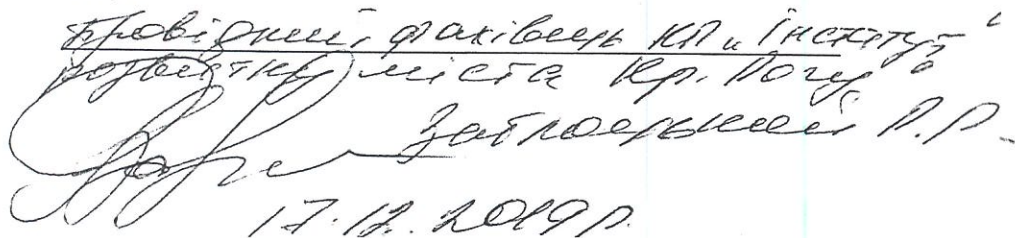 Провідний фахівець КП "Інститут
розвитку міста Кр. Рогу"
Р.Р.
17.12.2019р.